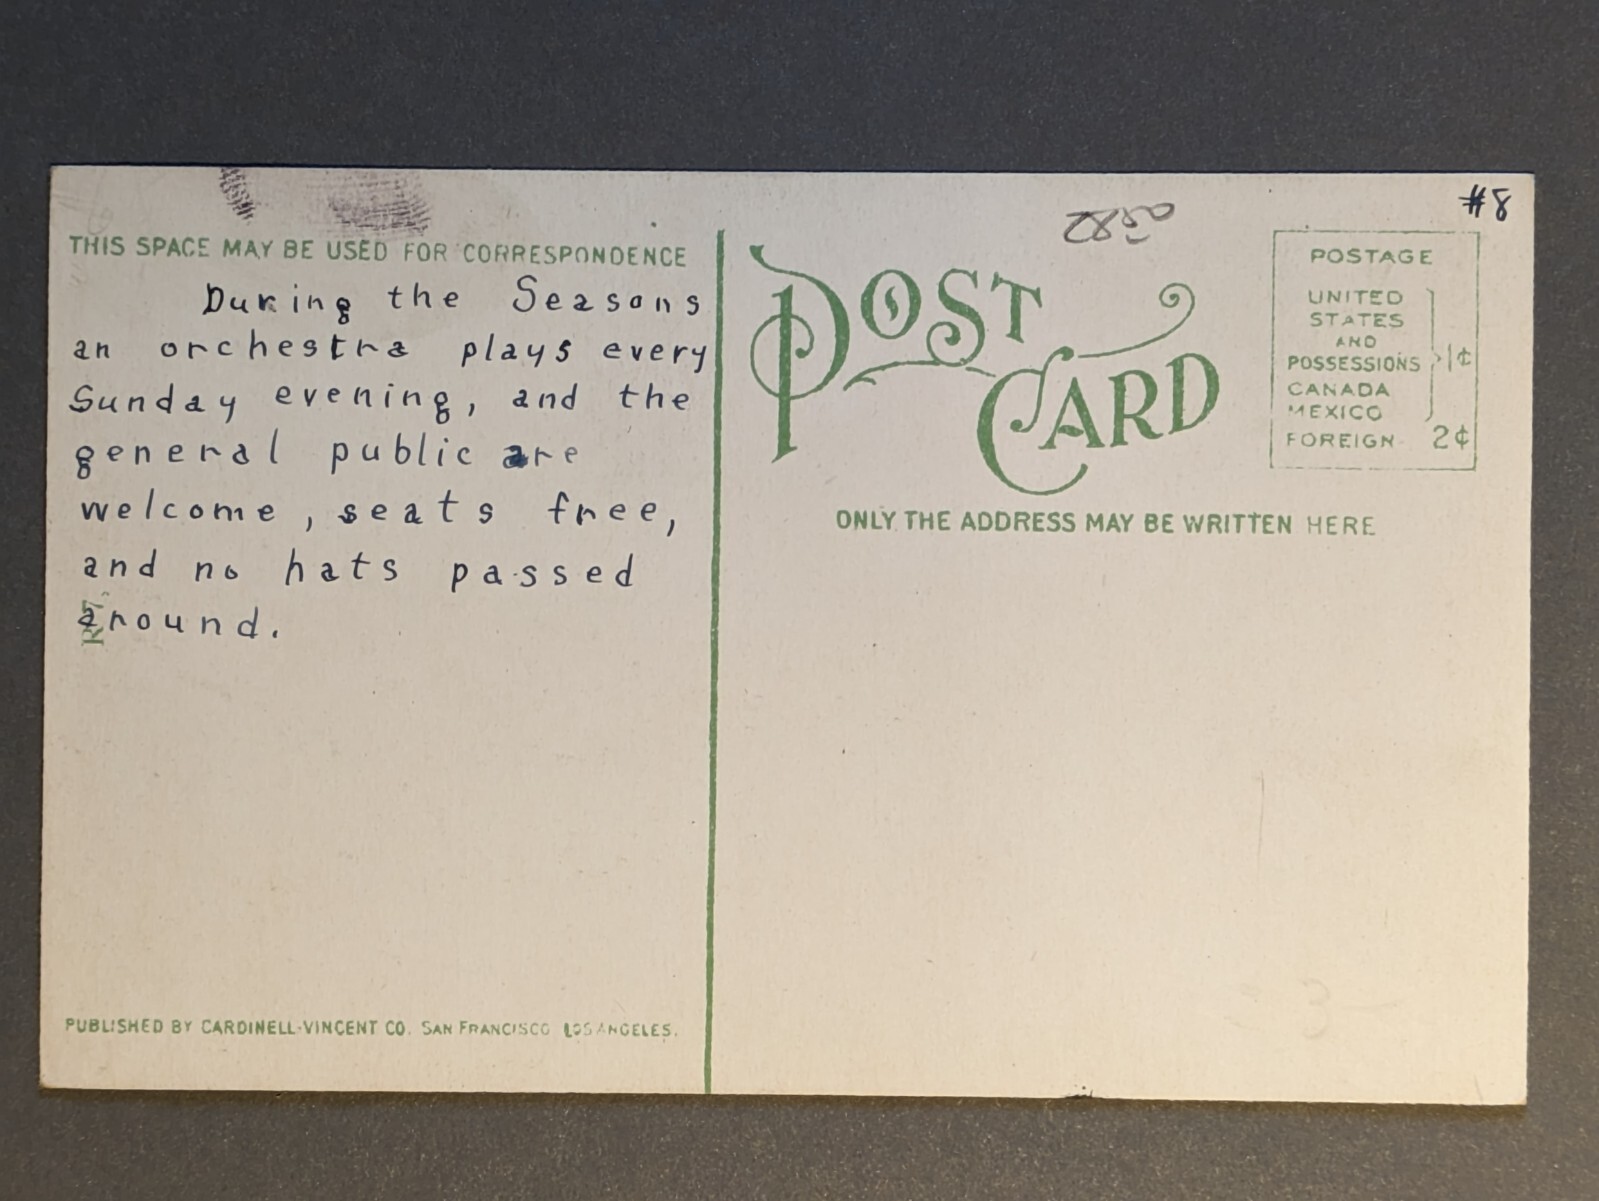 #8
THIS SPACE MAY BE USED FOR CORRESPONDENCE
During the Seasons
an orchestra plays every
Sunday evening, and the
general public are
welcome, seats free,
and no hats passed
around.
PUBLISHED BY CARDINELL-VINCENT CO. SAN FRANCISCO LOS ANGELES.
POST
CARD
ONLY THE ADDRESS MAY BE WRITTEN HERE
POSTAGE
UNITED
STATES
AND
POSSESSIONS 1¢
CANADA
MEXICO
FOREIGN 2¢